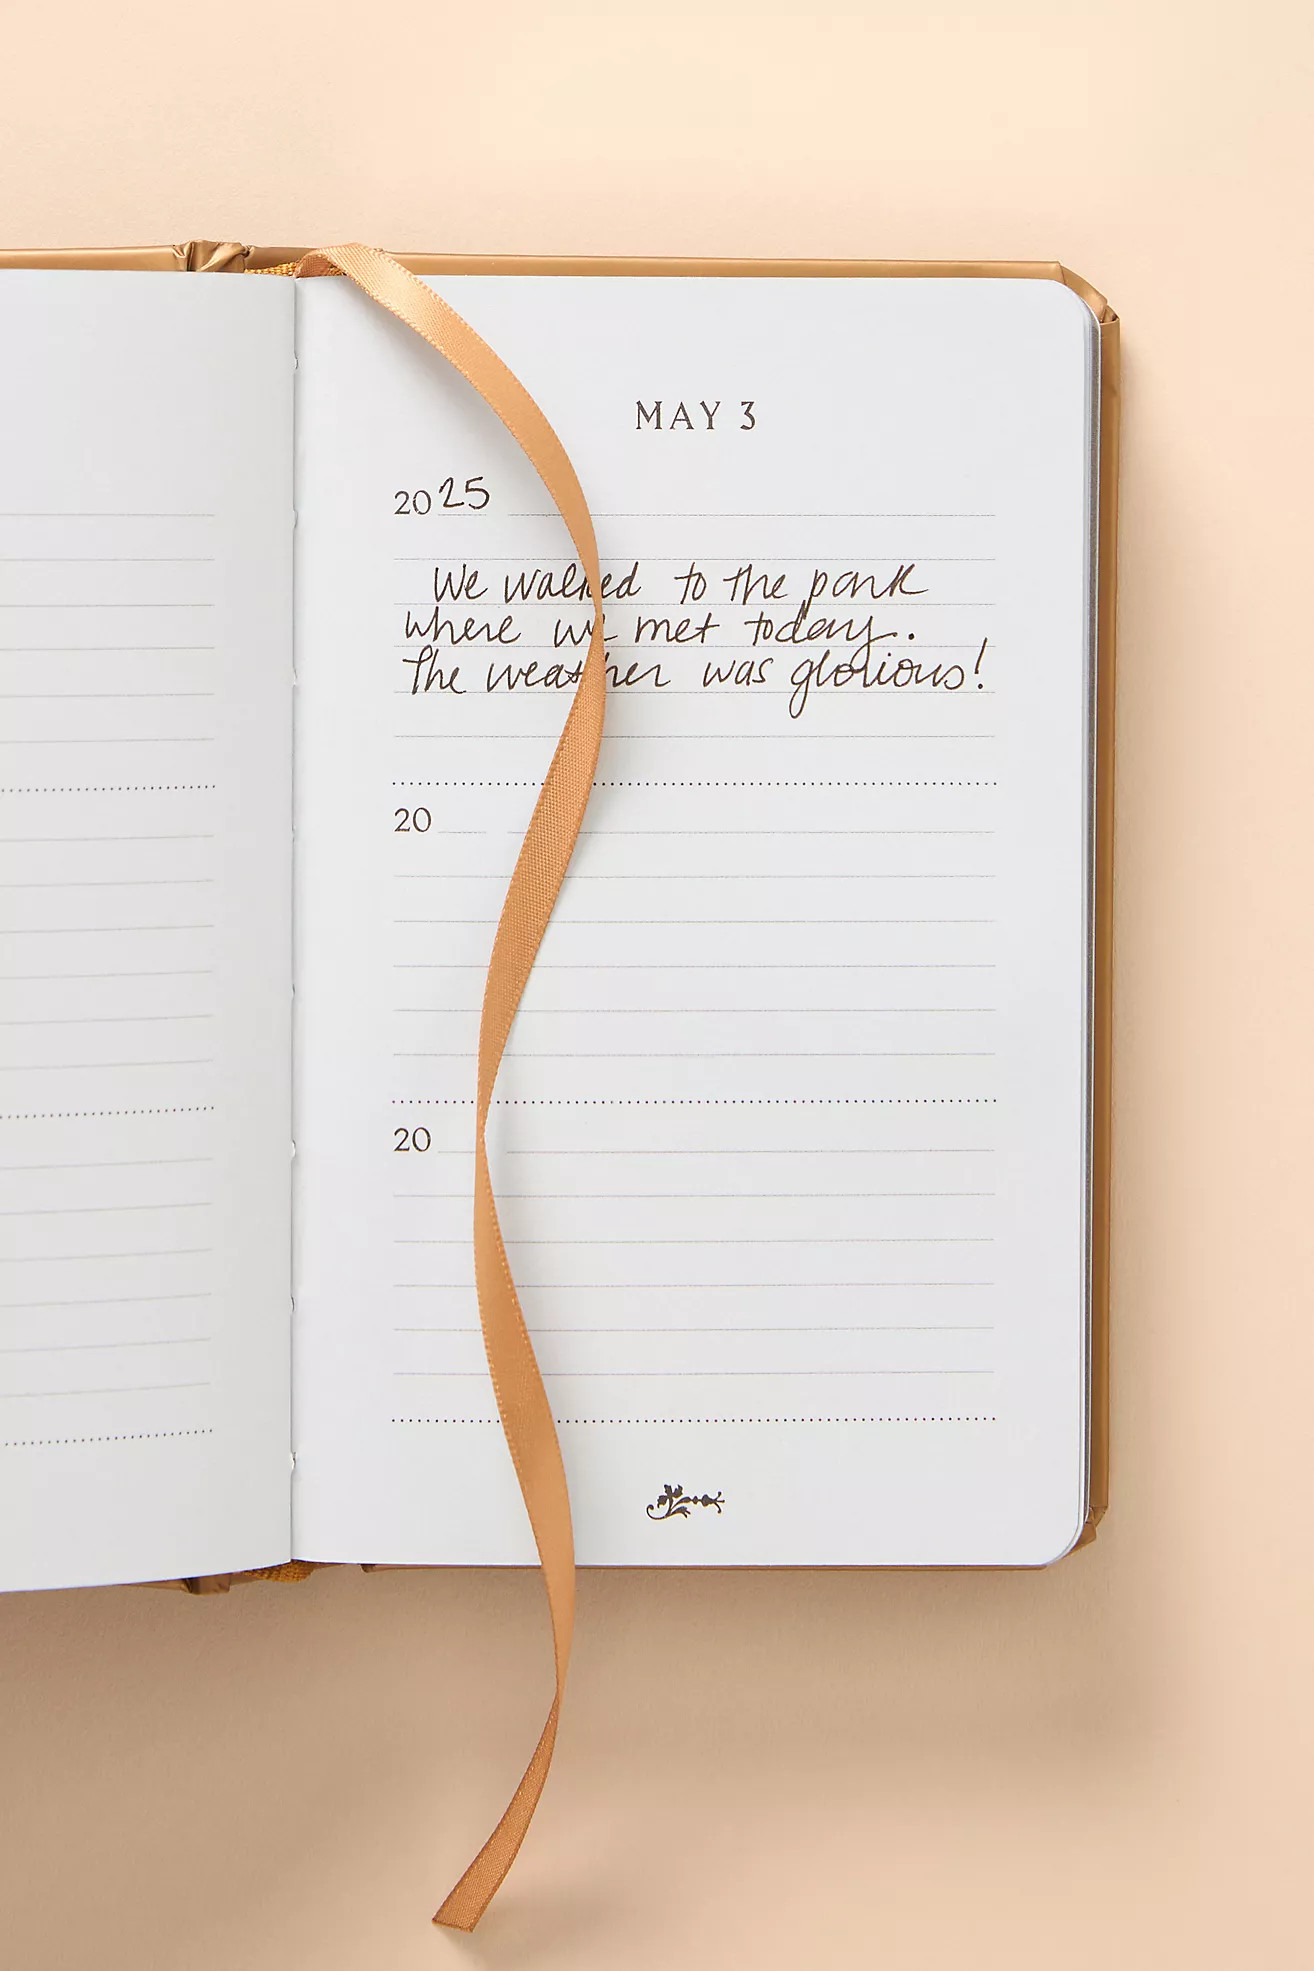 MAY 3
2025
We walked to the park
where we met today.
The weather was glorious!
20
20